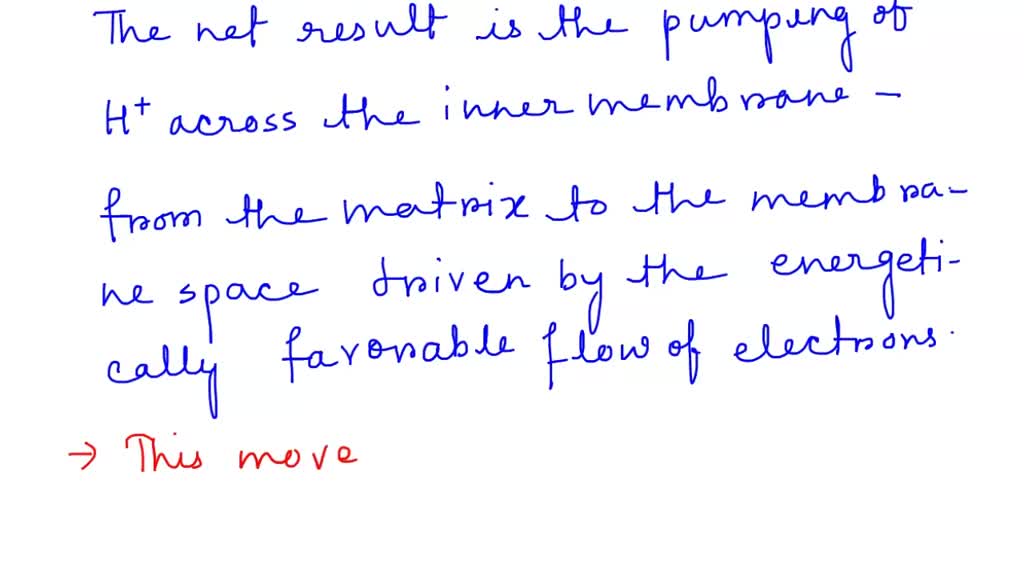 The net result is the pumping of
H+ across the inner membrane -
from the matrix to the membra-
ne space driven by the energeti-
cally favorable flow of electrons.
→ This move